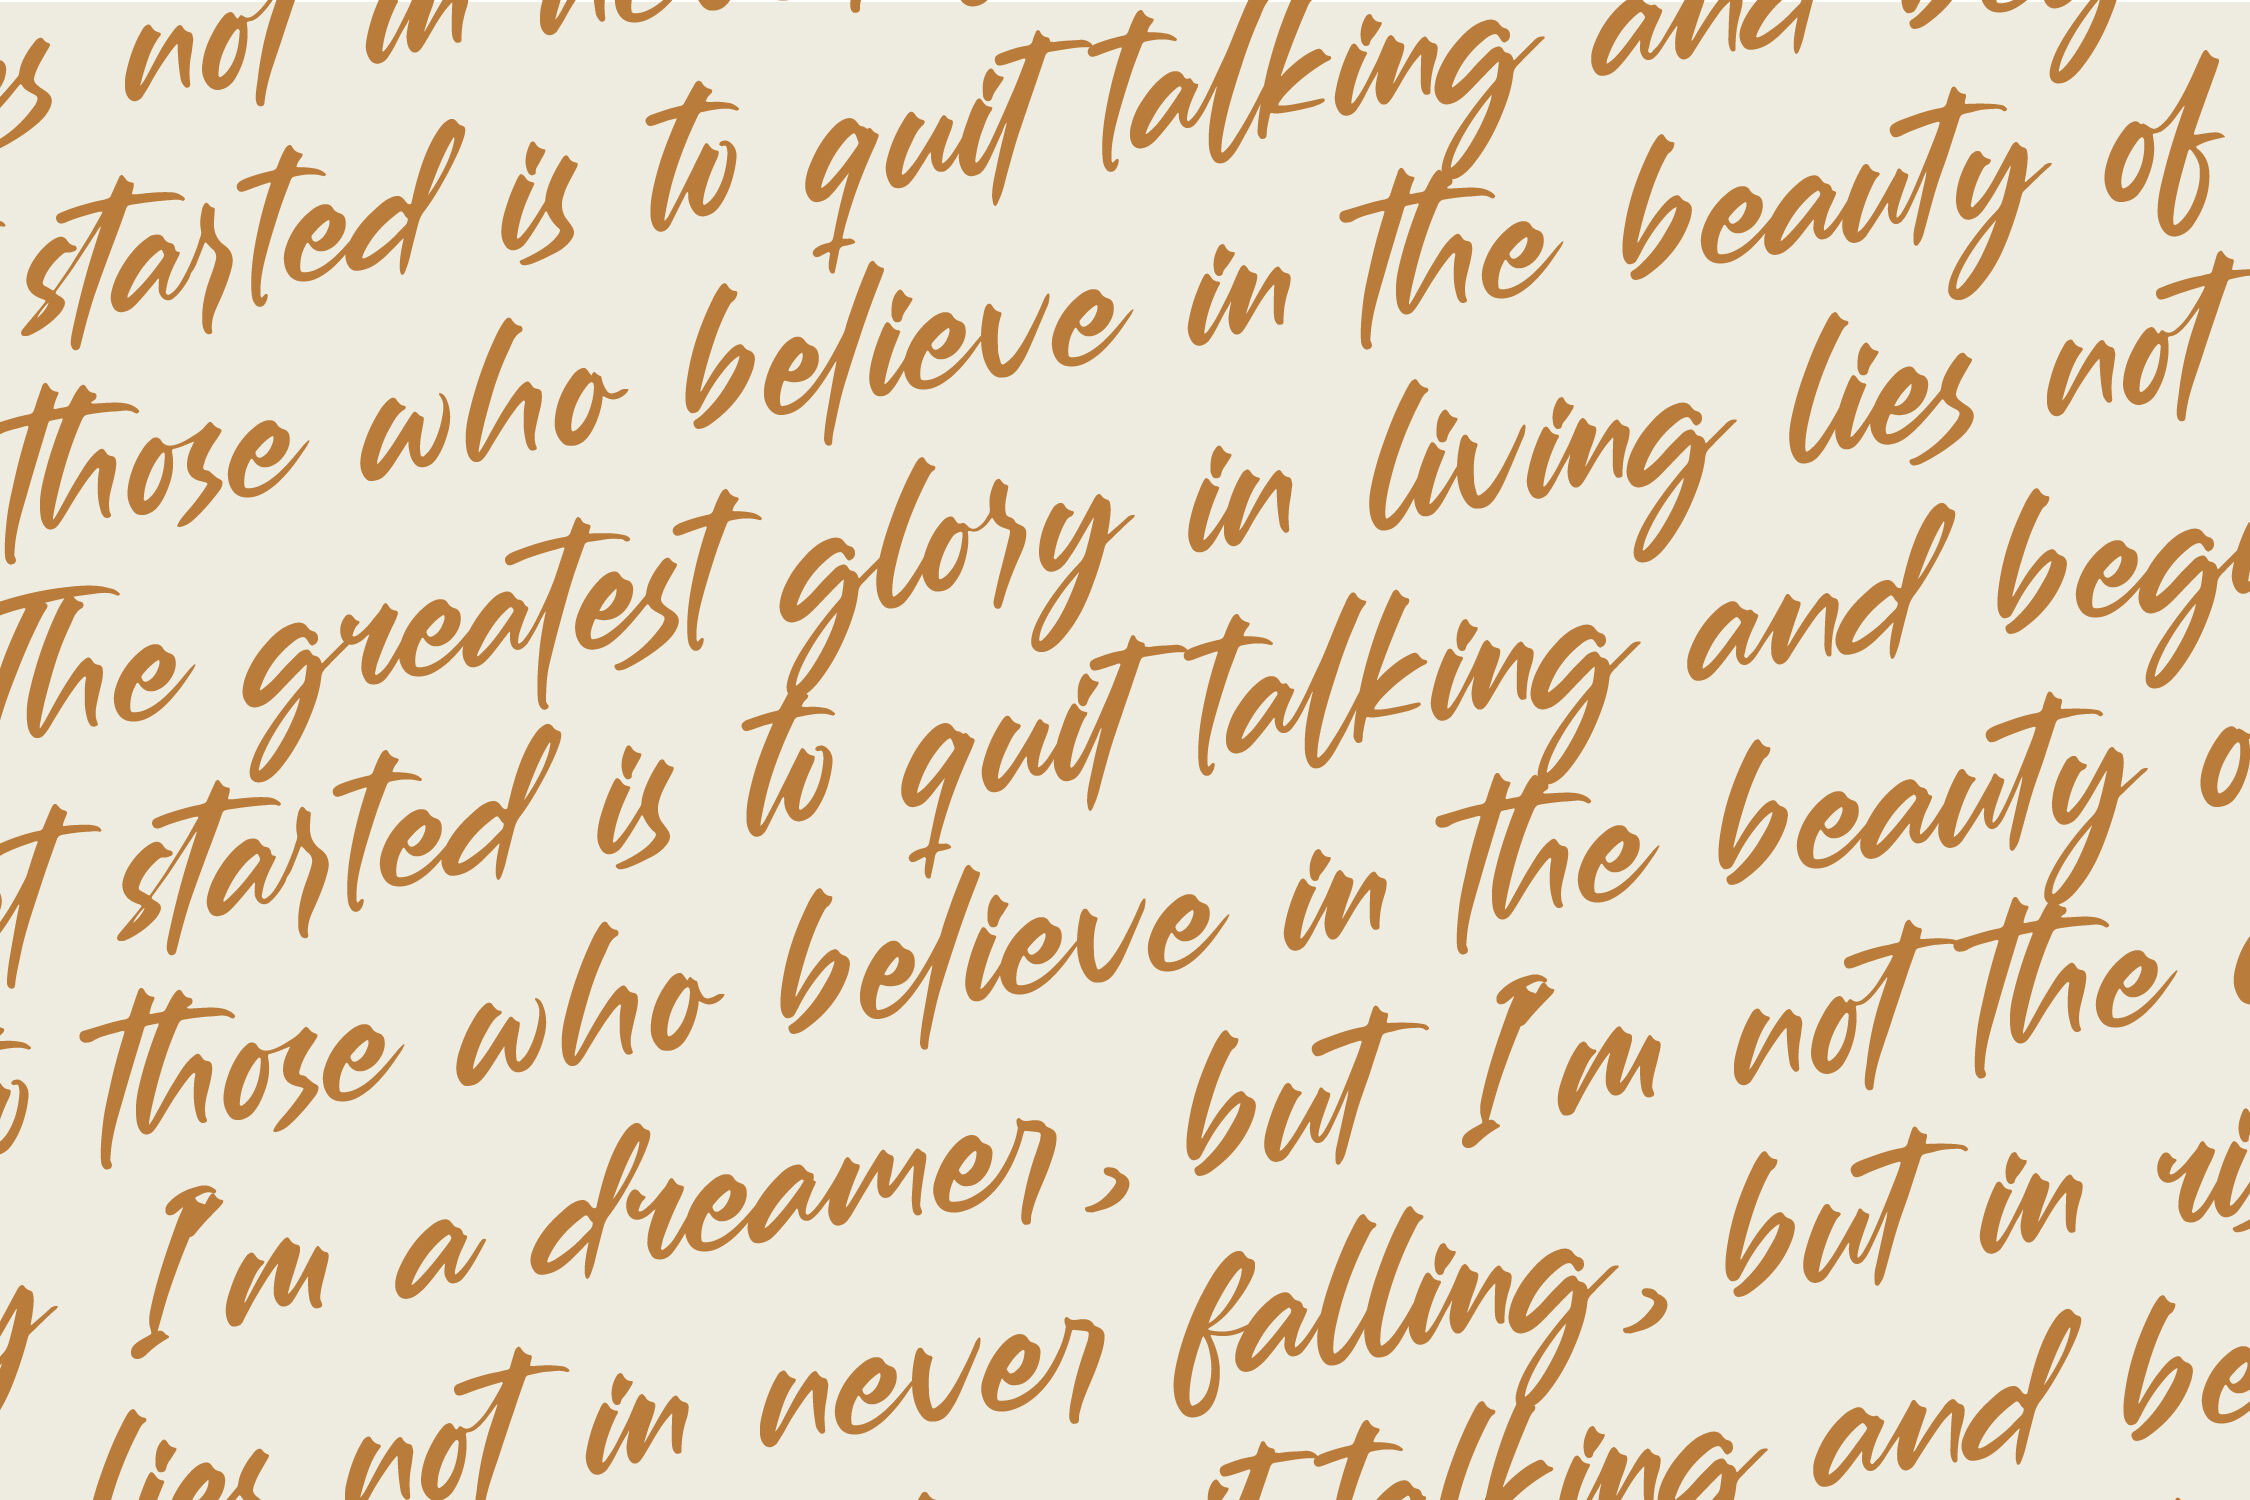 not in
started is to quit talking and
those who believe in the beauty of
The greatest glory in living lies not
started is to quit talking and
those who believe in the beauty
I'm a dreamer, but I'm not the
lies not in never falling, but in
talking and